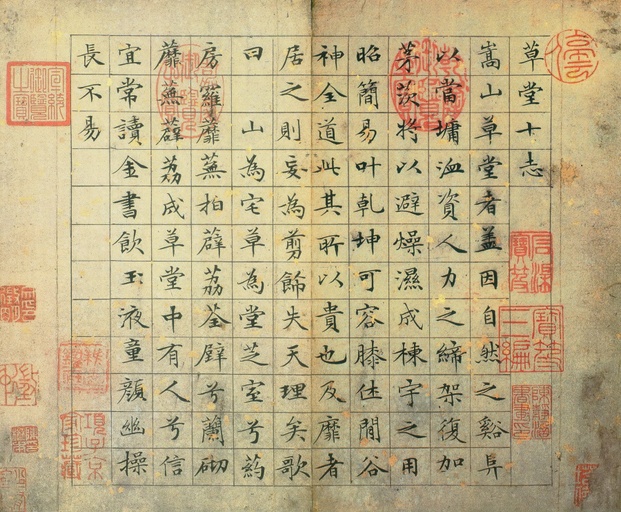 草堂十志
嵩山草堂者盖因自然之谿阜
以當墉洫資人力之締架復加
茅茨将以避燥濕成棟宇之用
昭簡易叶乾坤可容膝休閒谷
神全道此其所以貴也及靡者
居之則妄為剪餙失天理矣歌
曰　山為宅草為堂芝室兮葯
房羅蘼蕪拍薜荔荃壁兮蘭砌
蘼蕪薜荔成草堂中有人兮信
宜常讀金書飲玉液童顏幽操
長不易